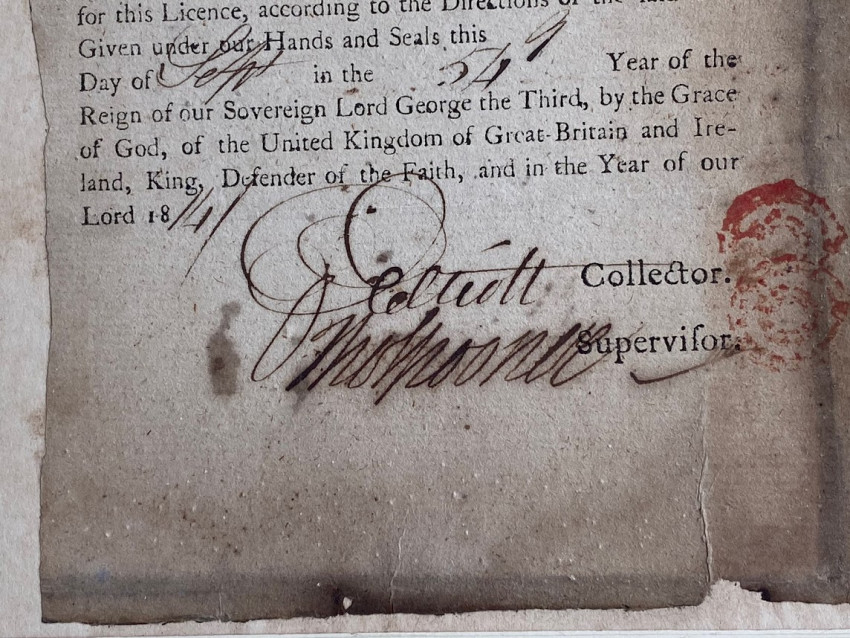 for this Licence, according to the Directions of the said
Given under our Hands and Seals this 9
Day of Sept in the 54 Year of the
Reign of our Sovereign Lord George the Third, by the Grace
of God, of the United Kingdom of Great-Britain and Ire-
land, King, Defender of the Faith, and in the Year of our
Lord 1814
Elliott Collector.
Superviſor.